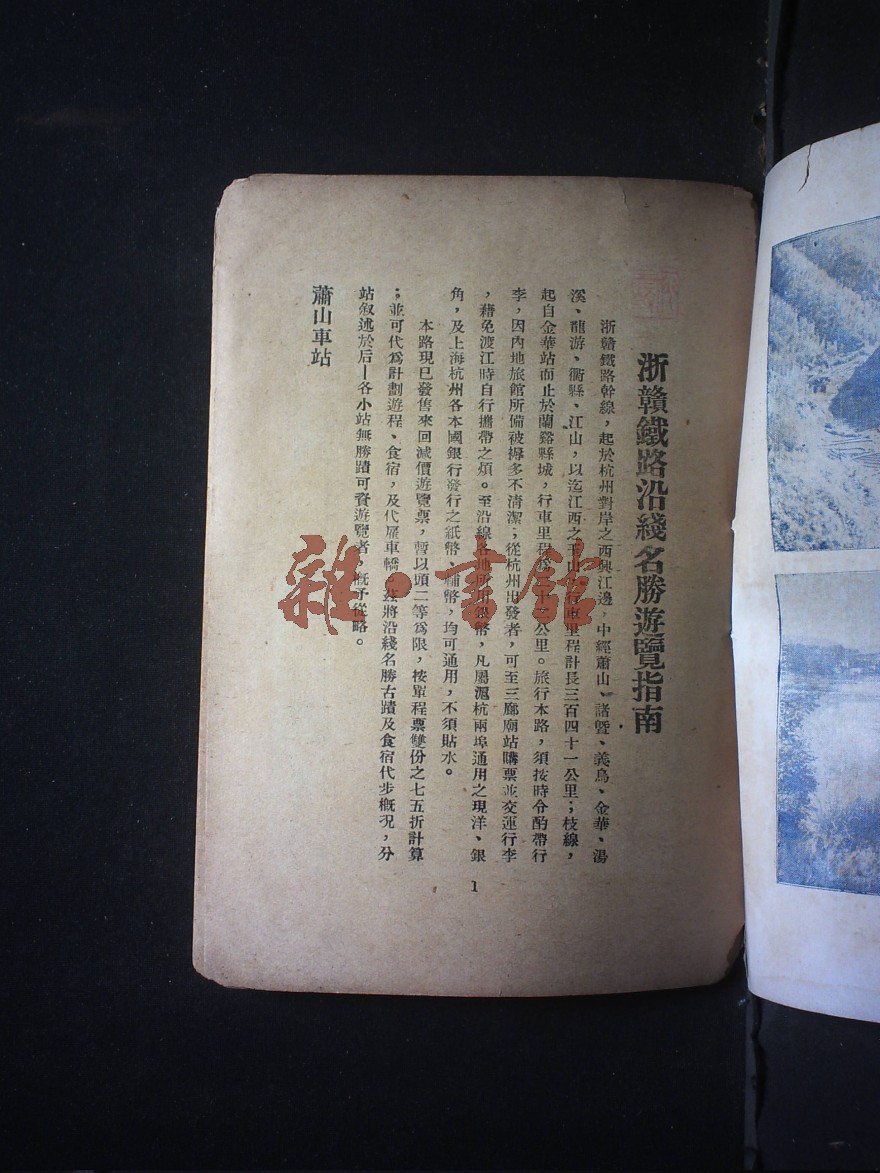 浙贛鐵路沿綫名勝遊覽指南
浙贛鐵路幹線，起於杭州對岸之西興江邊，中經蕭山、諸暨、義烏、金華、湯
溪、龍游、衢縣、江山，以迄江西之玉山，行車里程計長三百四十一公里；枝線，
起自金華站而止於蘭谿縣城，行車里程為十二公里。旅行本路，須按時令酌帶行
李，因內地旅館所備被褥多不清潔；從杭州出發者，可至三廊廟站購票並交運行李
，藉免渡江時自行攜帶之煩。至沿線各地所用銀幣，凡屬滬杭兩埠通用之現洋、銀
角，及上海杭州各本國銀行發行之紙幣、輔幣，均可通用，不須貼水。
本路現已發售來回減價遊覽票，暫以頭二等為限，按單程票雙份之七五折計算
；並可代為計劃遊程、食宿，及代雇車轎。茲將沿綫名勝古蹟及食宿代步概況，分
站叙述於后—各小站無勝蹟可資遊覽者，概予從略。
蕭山車站
1
雜·書館